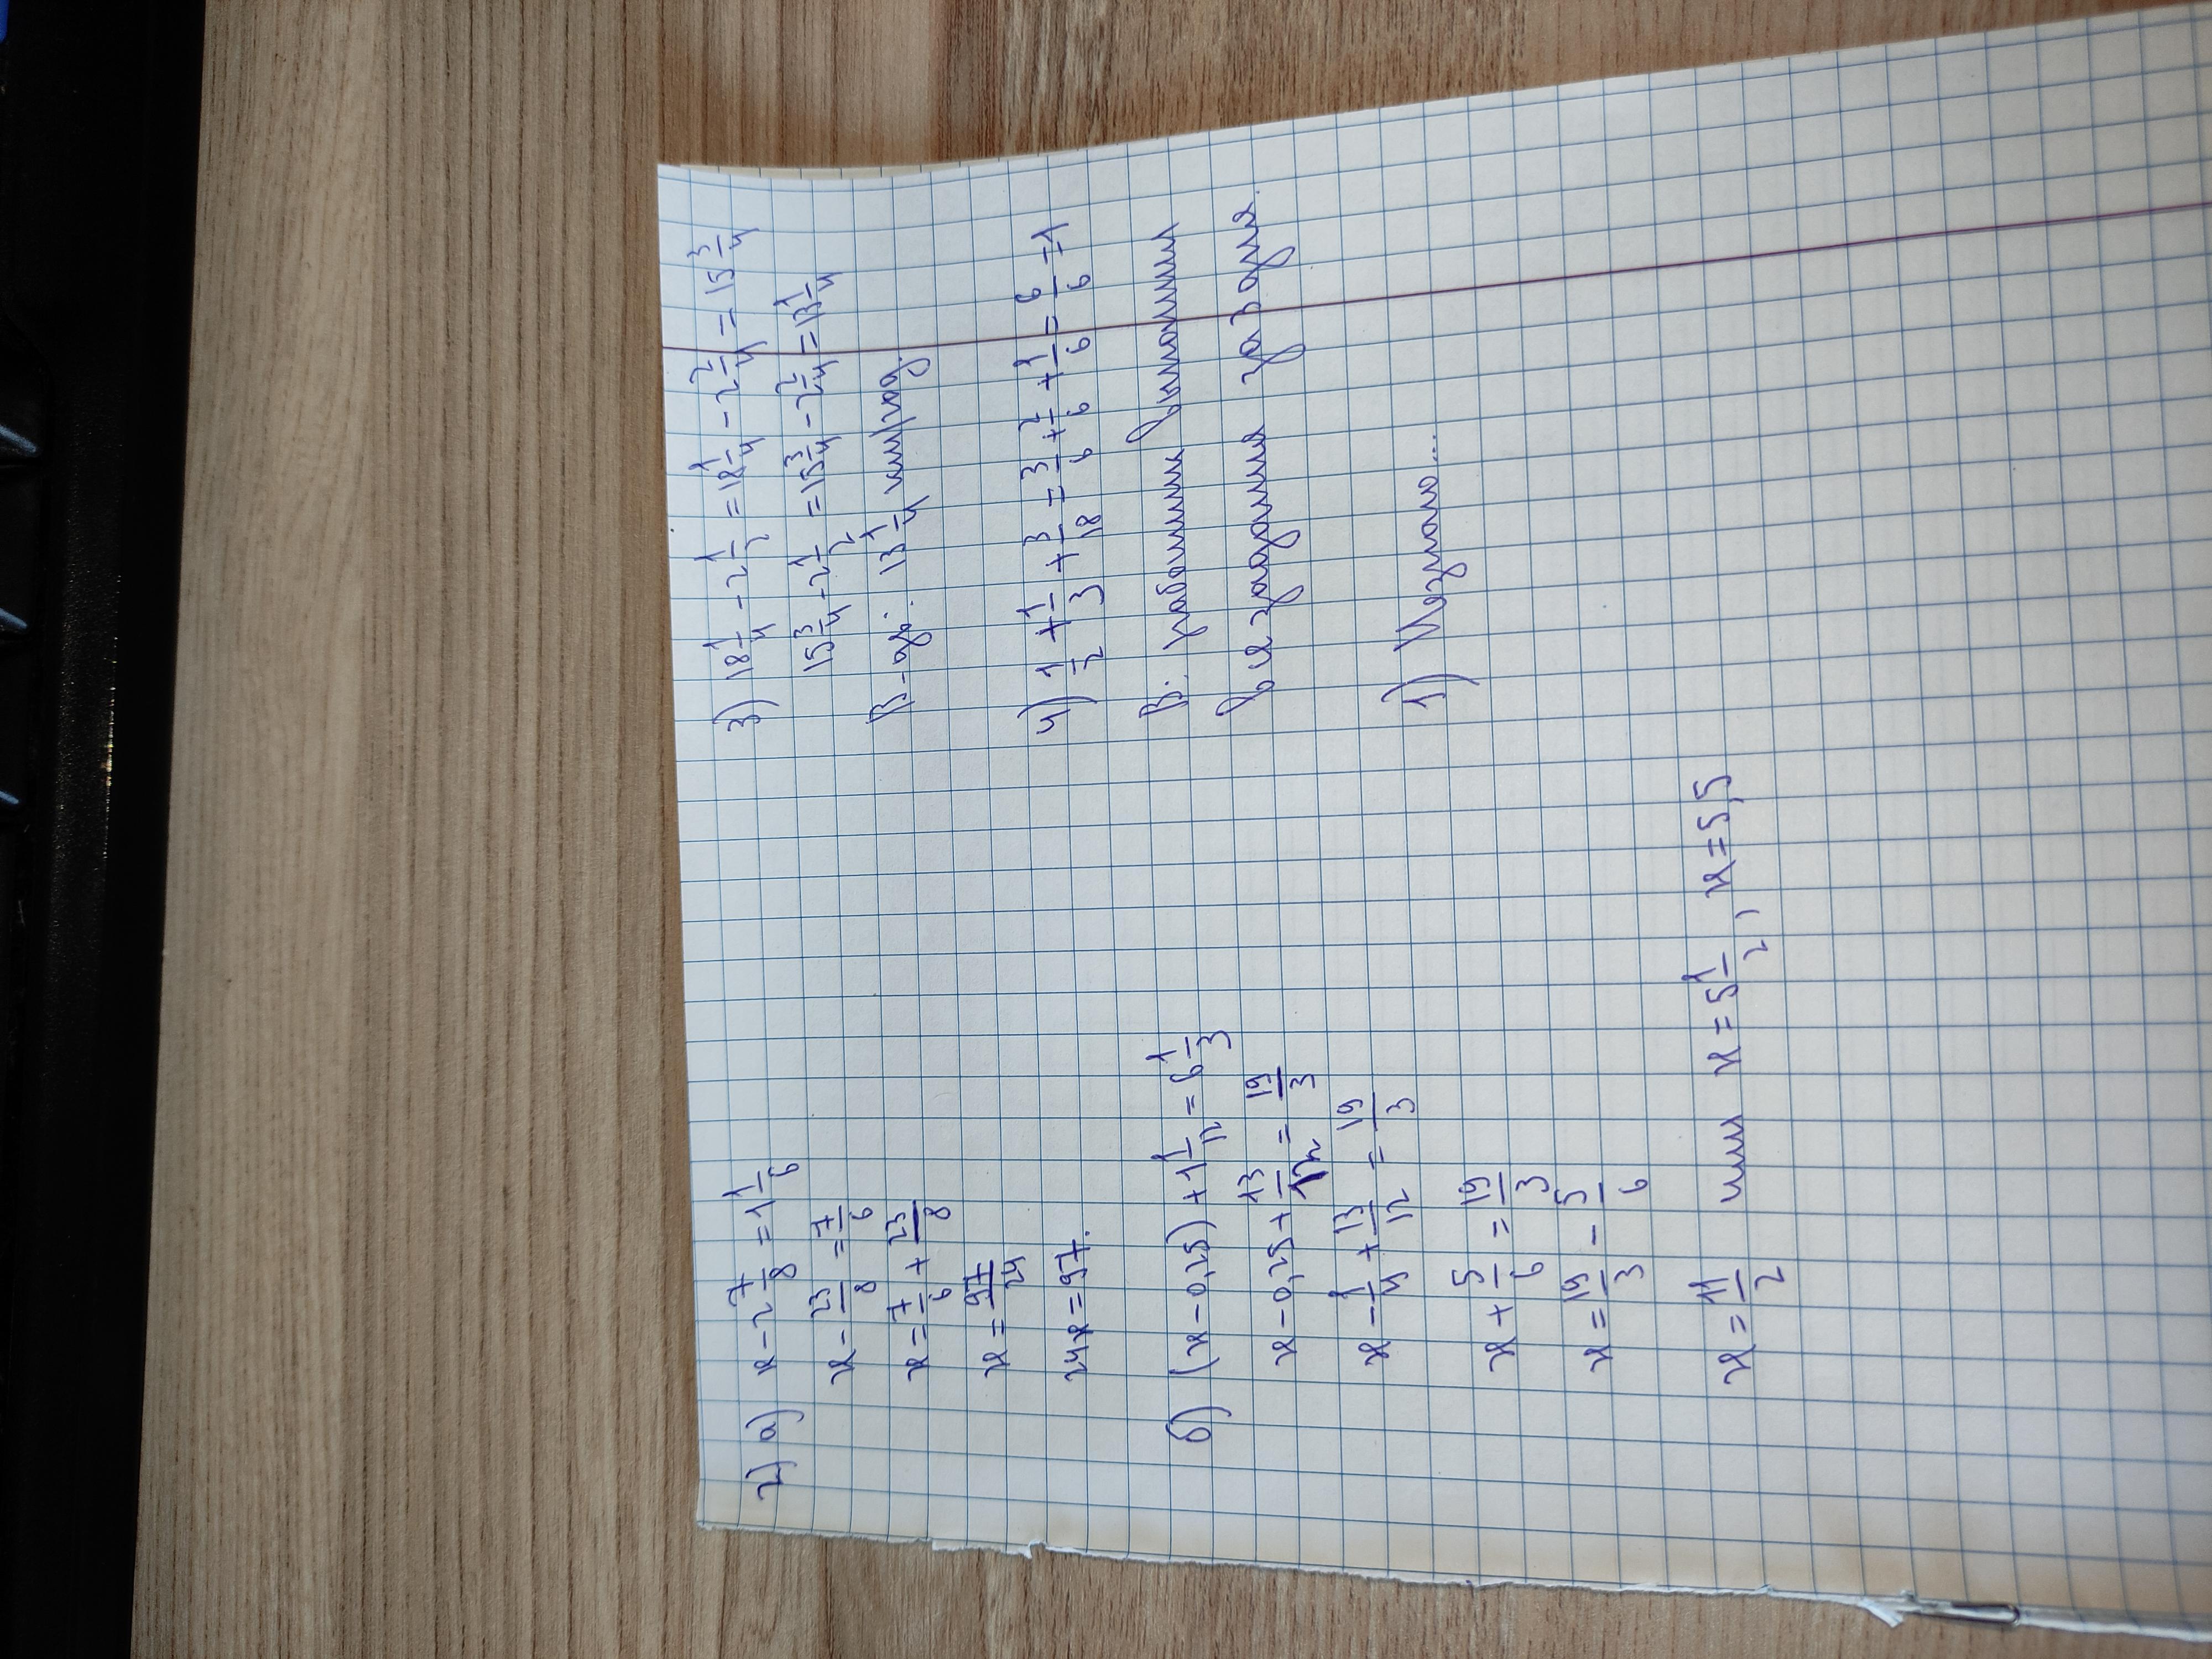 2) а) x - 2 7/8 = 1 1/6
x - 23/8 = 7/6
x = 7/6 + 23/8
x = 97/24
24x = 97.
б) (x - 0,25) + 1 1/12 = 6 1/3
x - 0,25 + 13/12 = 19/3
x - 1/4 + 13/12 = 19/3
x + 5/6 = 19/3
x = 19/3 - 5/6
x = 11/2 или x = 5 1/2, x = 5,5
3) 18 1/4 - 2 1/2 = 18 1/4 - 2 2/4 = 15 3/4
15 3/4 - 2 1/2 = 15 3/4 - 2 2/4 = 13 1/4
В-дь: 13 1/4 км/год.
4) 1/2 + 1/3 + 3/18 = 3/6 + 2/6 + 1/6 = 6/6 = 1
В:
1) Незнаю...